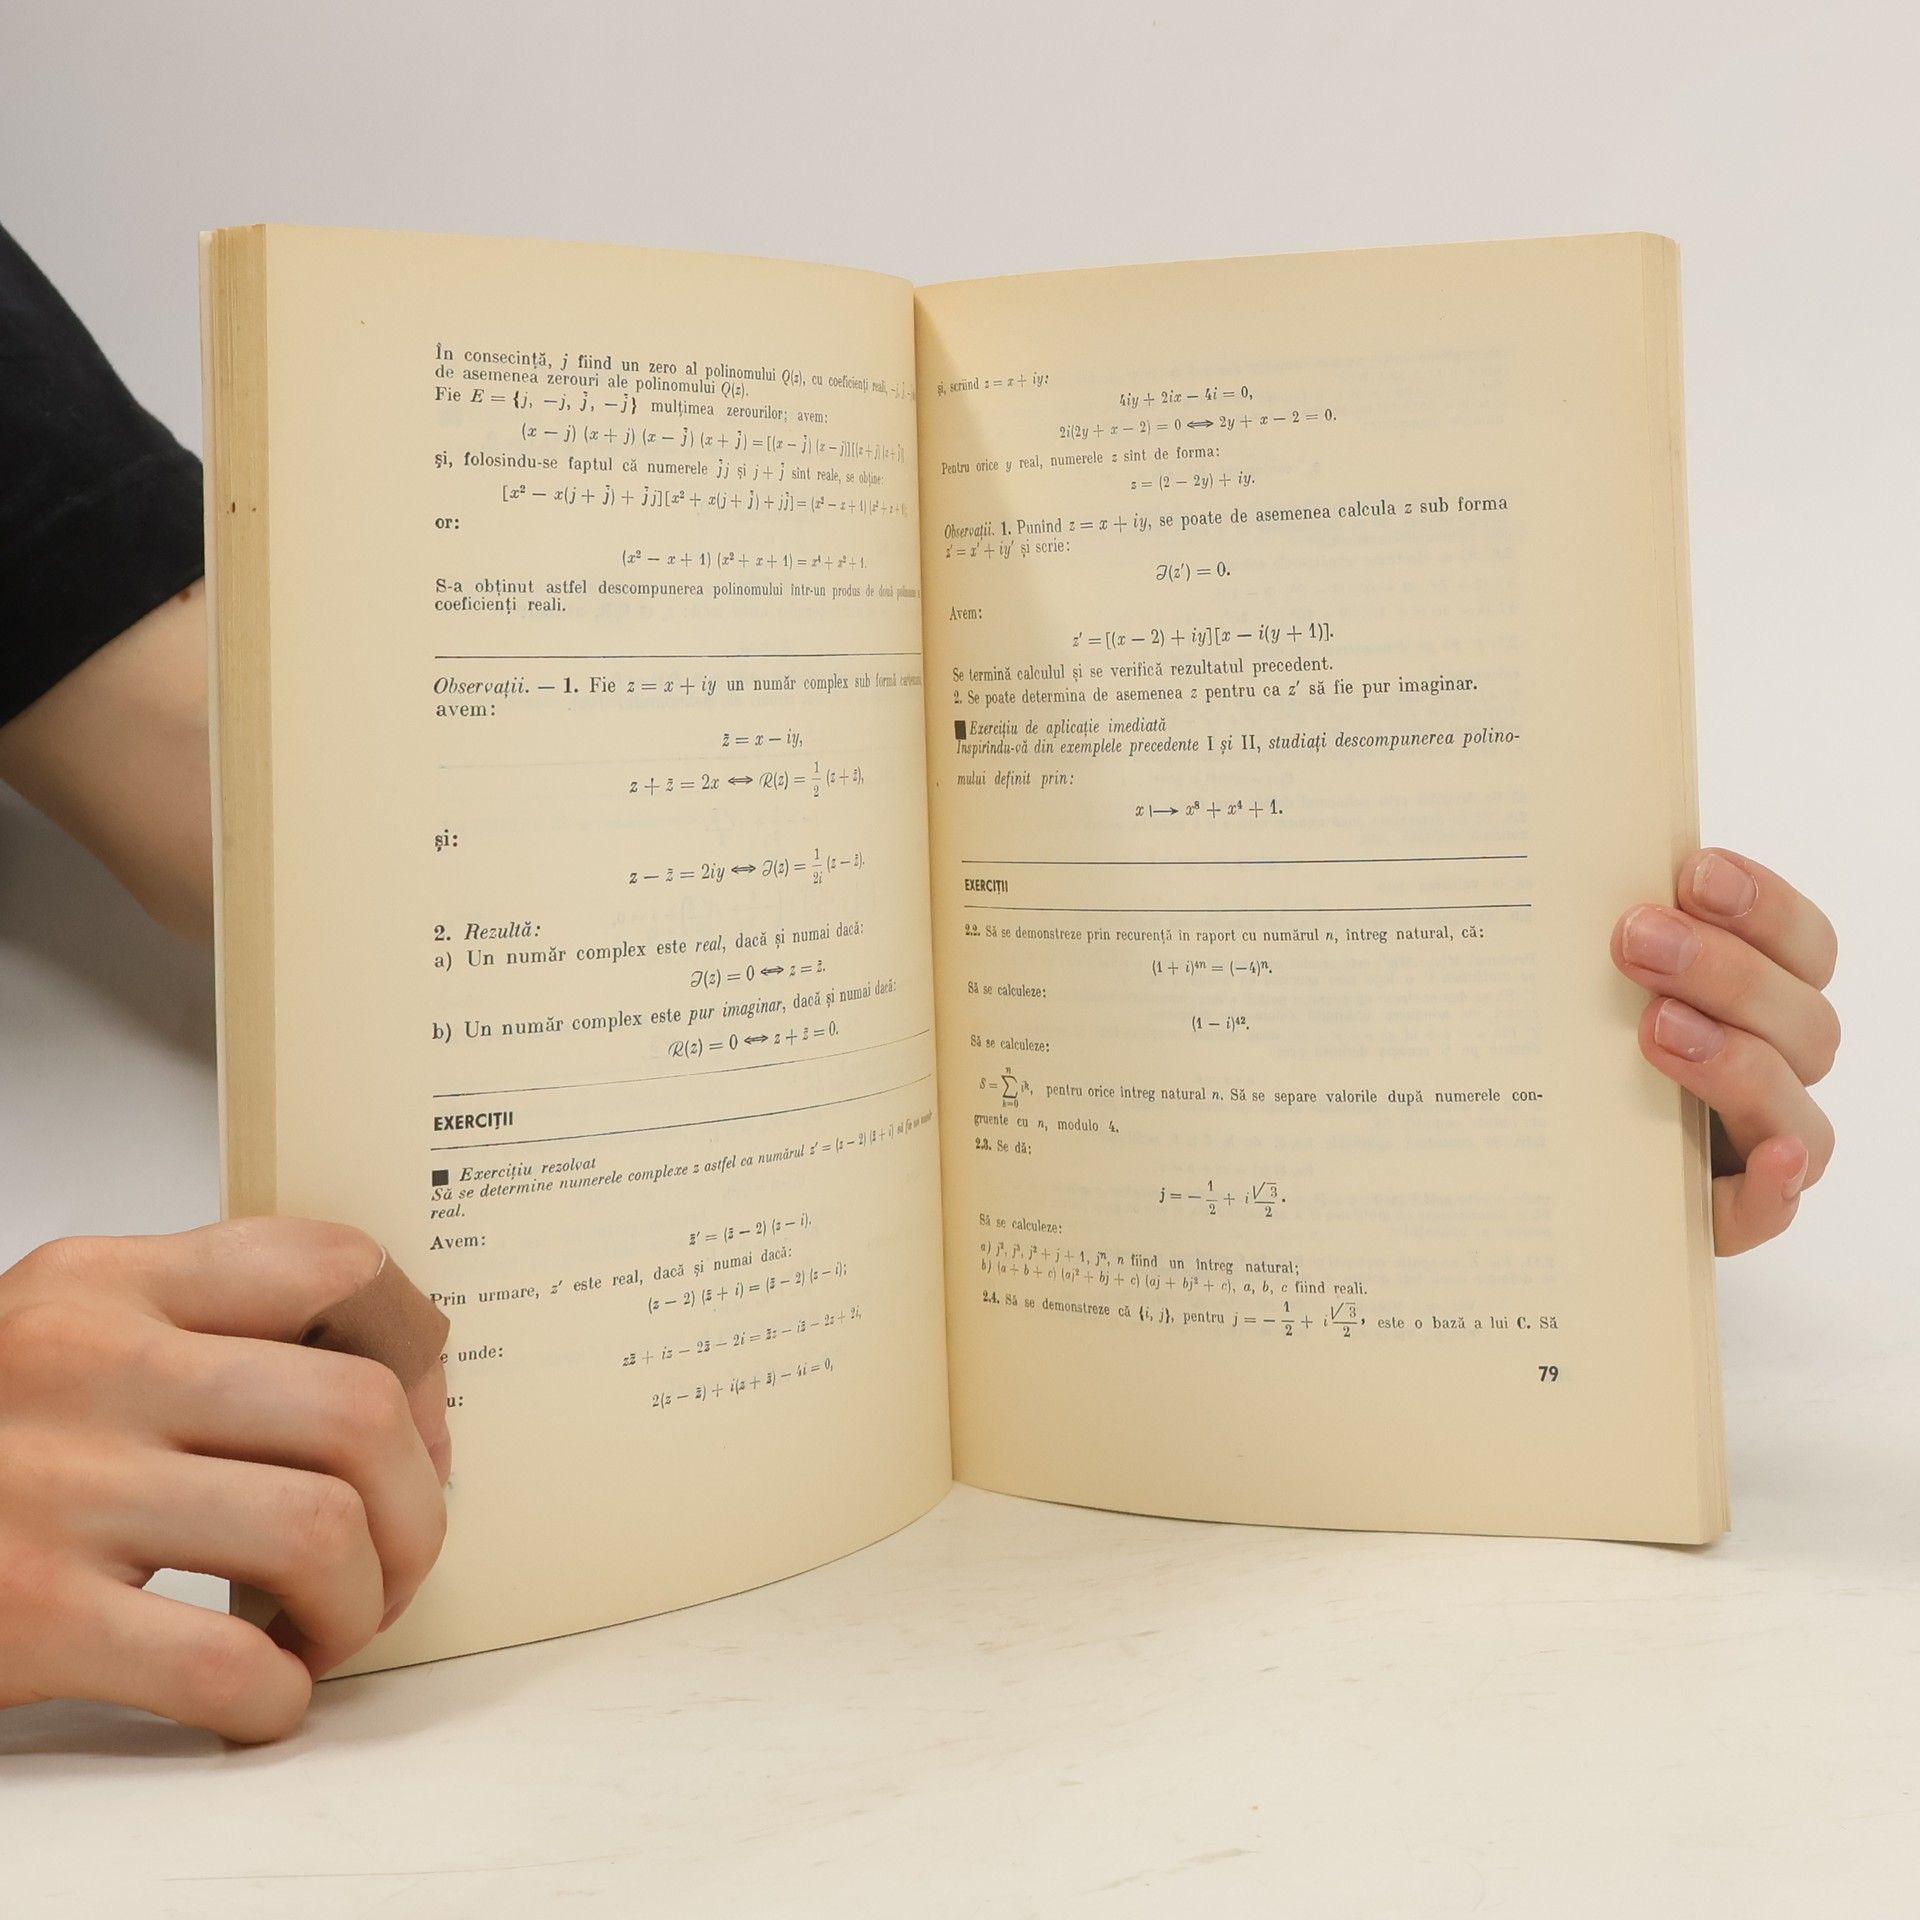 În consecință, j fiind un zero al polinomului Q(z), cu coeficienți reali,
de asemenea zerouri ale polinomului Q(z).
Fie E = {j, −j, j̄, −j̄} mulțimea zerourilor; avem:
(x − j) (x + j) (x − j̄) (x + j̄) = [(x − j̄) (x − j)][(x + j) (x + j̄)]
și, folosindu-se faptul că numerele j̄j și j + j̄ sînt reale, se obține:
[x² − x(j + j̄) + j̄j][x² + x(j + j̄) + jj̄] = (x² − x + 1) (x² + x + 1)
or:
(x² − x + 1) (x² + x + 1) = x⁴ + x² + 1.
S-a obținut astfel descompunerea polinomului într-un produs de două
coeficienți reali.
Observații. — 1. Fie z = x + iy un număr complex sub formă
avem:
z̄ = x − iy,
z + z̄ = 2x ⟺ ℛ(z) = 1/2 (z + z̄),
și:
z − z̄ = 2iy ⟺ ℐ(z) = 1/2i (z − z̄).
2. Rezultă:
a) Un număr complex este real, dacă și numai dacă:
ℐ(z) = 0 ⟺ z = z̄.
b) Un număr complex este pur imaginar, dacă și numai dacă:
ℛ(z) = 0 ⟺ z + z̄ = 0.
EXERCIȚII
■ Exercițiu rezolvat
Să se determine numerele complexe z astfel ca numărul z′ = (z − 2) (z̄ + i) să fie un
real.
Avem:
z̄′ = (z̄ − 2) (z − i).
Prin urmare, z′ este real, dacă și numai dacă:
(z − 2) (z̄ + i) = (z̄ − 2) (z − i);
e unde:
zz̄ + iz − 2z̄ − 2i = z̄z − iz̄ − 2z + 2i,
u:
2(z − z̄) + i(z + z̄) − 4i = 0,
și, scriind z = x + iy:
4iy + 2ix − 4i = 0,
2i(2y + x − 2) = 0 ⟺ 2y + x − 2 = 0.
Pentru orice y real, numerele z sînt de forma:
z = (2 − 2y) + iy.
Observații. 1. Punînd z = x + iy, se poate de asemenea calcula z sub forma
z′ = x′ + iy′ și scrie:
ℐ(z′) = 0.
Avem:
z′ = [(x − 2) + iy][x − i(y + 1)].
Se termină calculul și se verifică rezultatul precedent.
2. Se poate determina de asemenea z pentru ca z′ să fie pur imaginar.
■ Exercițiu de aplicație imediată
Inspirîndu-vă din exemplele precedente I și II, studiați descompunerea polino-
mului definit prin:
x ⟼ x⁸ + x⁴ + 1.
EXERCIȚII
2.2. Să se demonstreze prin recurență în raport cu numărul n, întreg natural, că:
(1 + i)⁴ⁿ = (−4)ⁿ.
Să se calculeze:
(1 − i)⁴².
Să se calculeze:
S = ∑ₖ₌₀ⁿ iᵏ, pentru orice întreg natural n. Să se separe valorile după numerele con-
gruente cu n, modulo 4.
2.3. Se dă:
j = − 1/2 + i √3/2 .
Să se calculeze:
a) j², j³, j² + j + 1, jⁿ, n fiind un întreg natural;
b) (a + b + c) (aj² + bj + c) (aj + bj² + c), a, b, c fiind reali.
2.4. Să se demonstreze că {i, j}, pentru j = − 1/2 + i √3/2, este o bază a lui C. Să
79